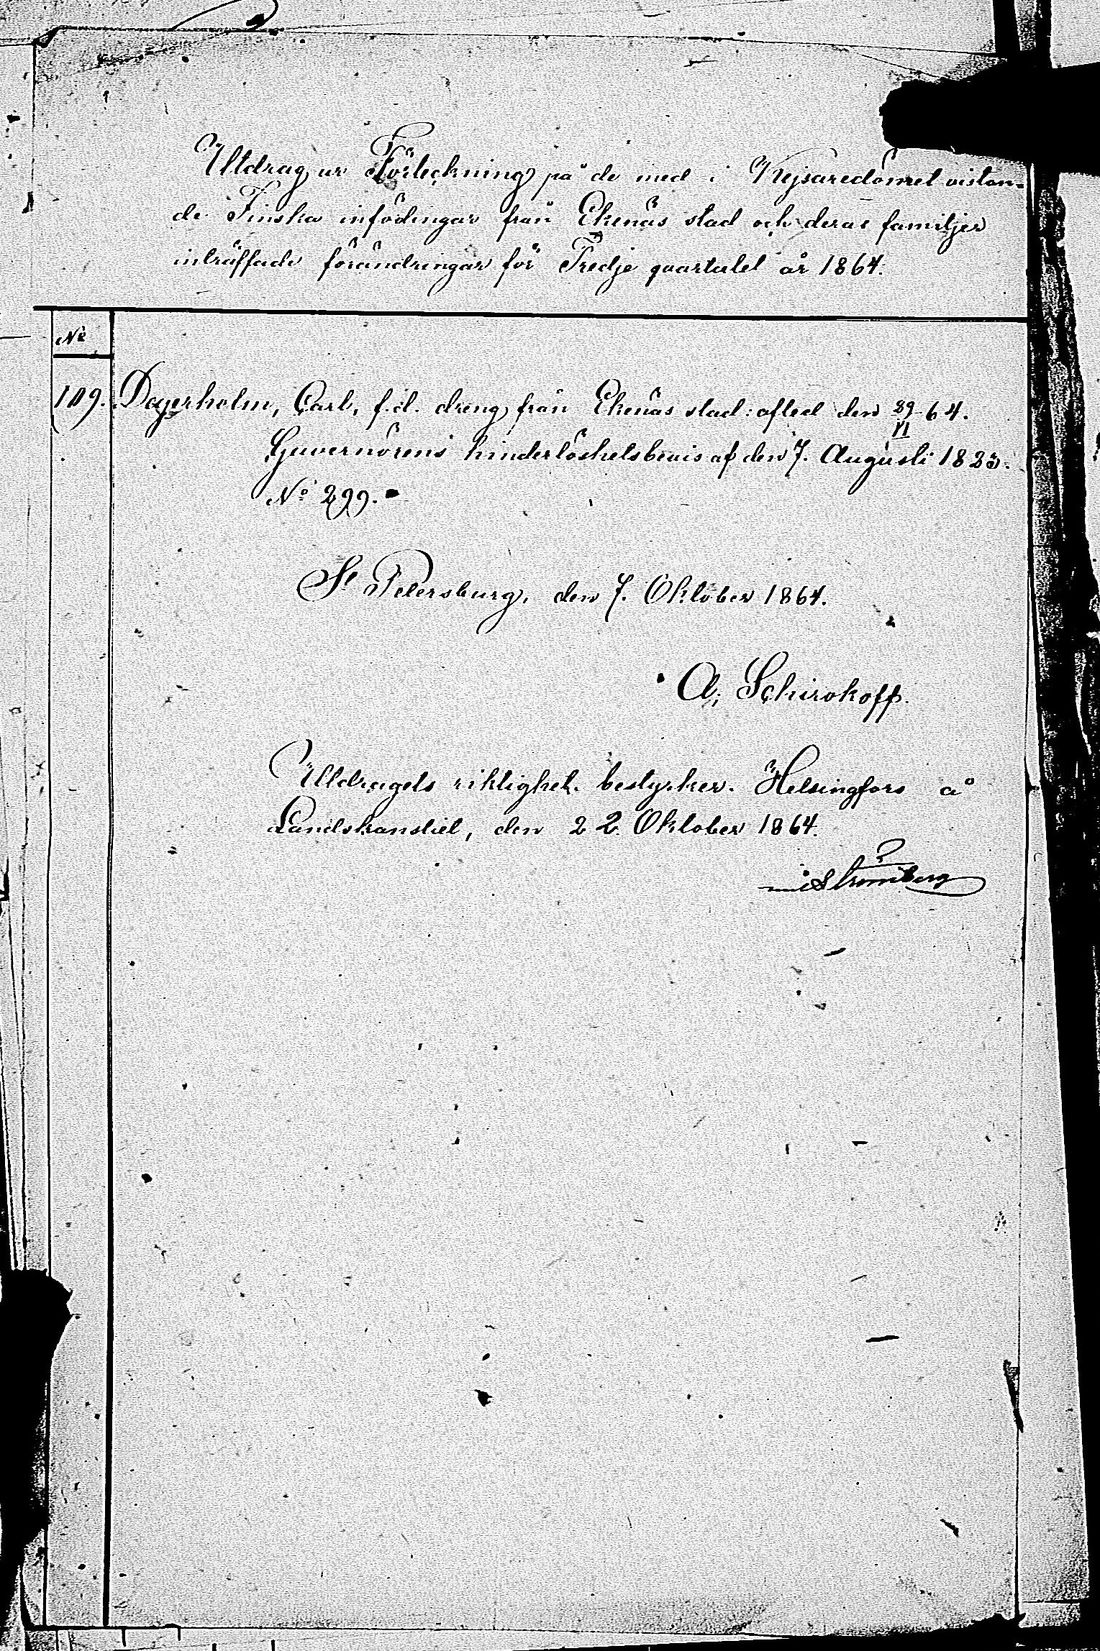 Utdrag ur Förteckning på de med i Kejsaredömet vistan-
de Finska infödingar från Ekenäs stad och deras familjer
inträffade förändringar för Tredje quartalet år 1864.
No
109. Dagerholm, Carl, f.d. dreng från Ekenäs stad: afled den 29/VI 64.
Guvernörens hinderlöshetsbevis af den 7. Augusti 1823.
No 299.
St Petersburg, den 7. Oktober 1864.
A. Schirokoff.
Utdragets riktighet bestyrker. Helsingfors å
Landskansliet, den 22. Oktober 1864.
Strömberg